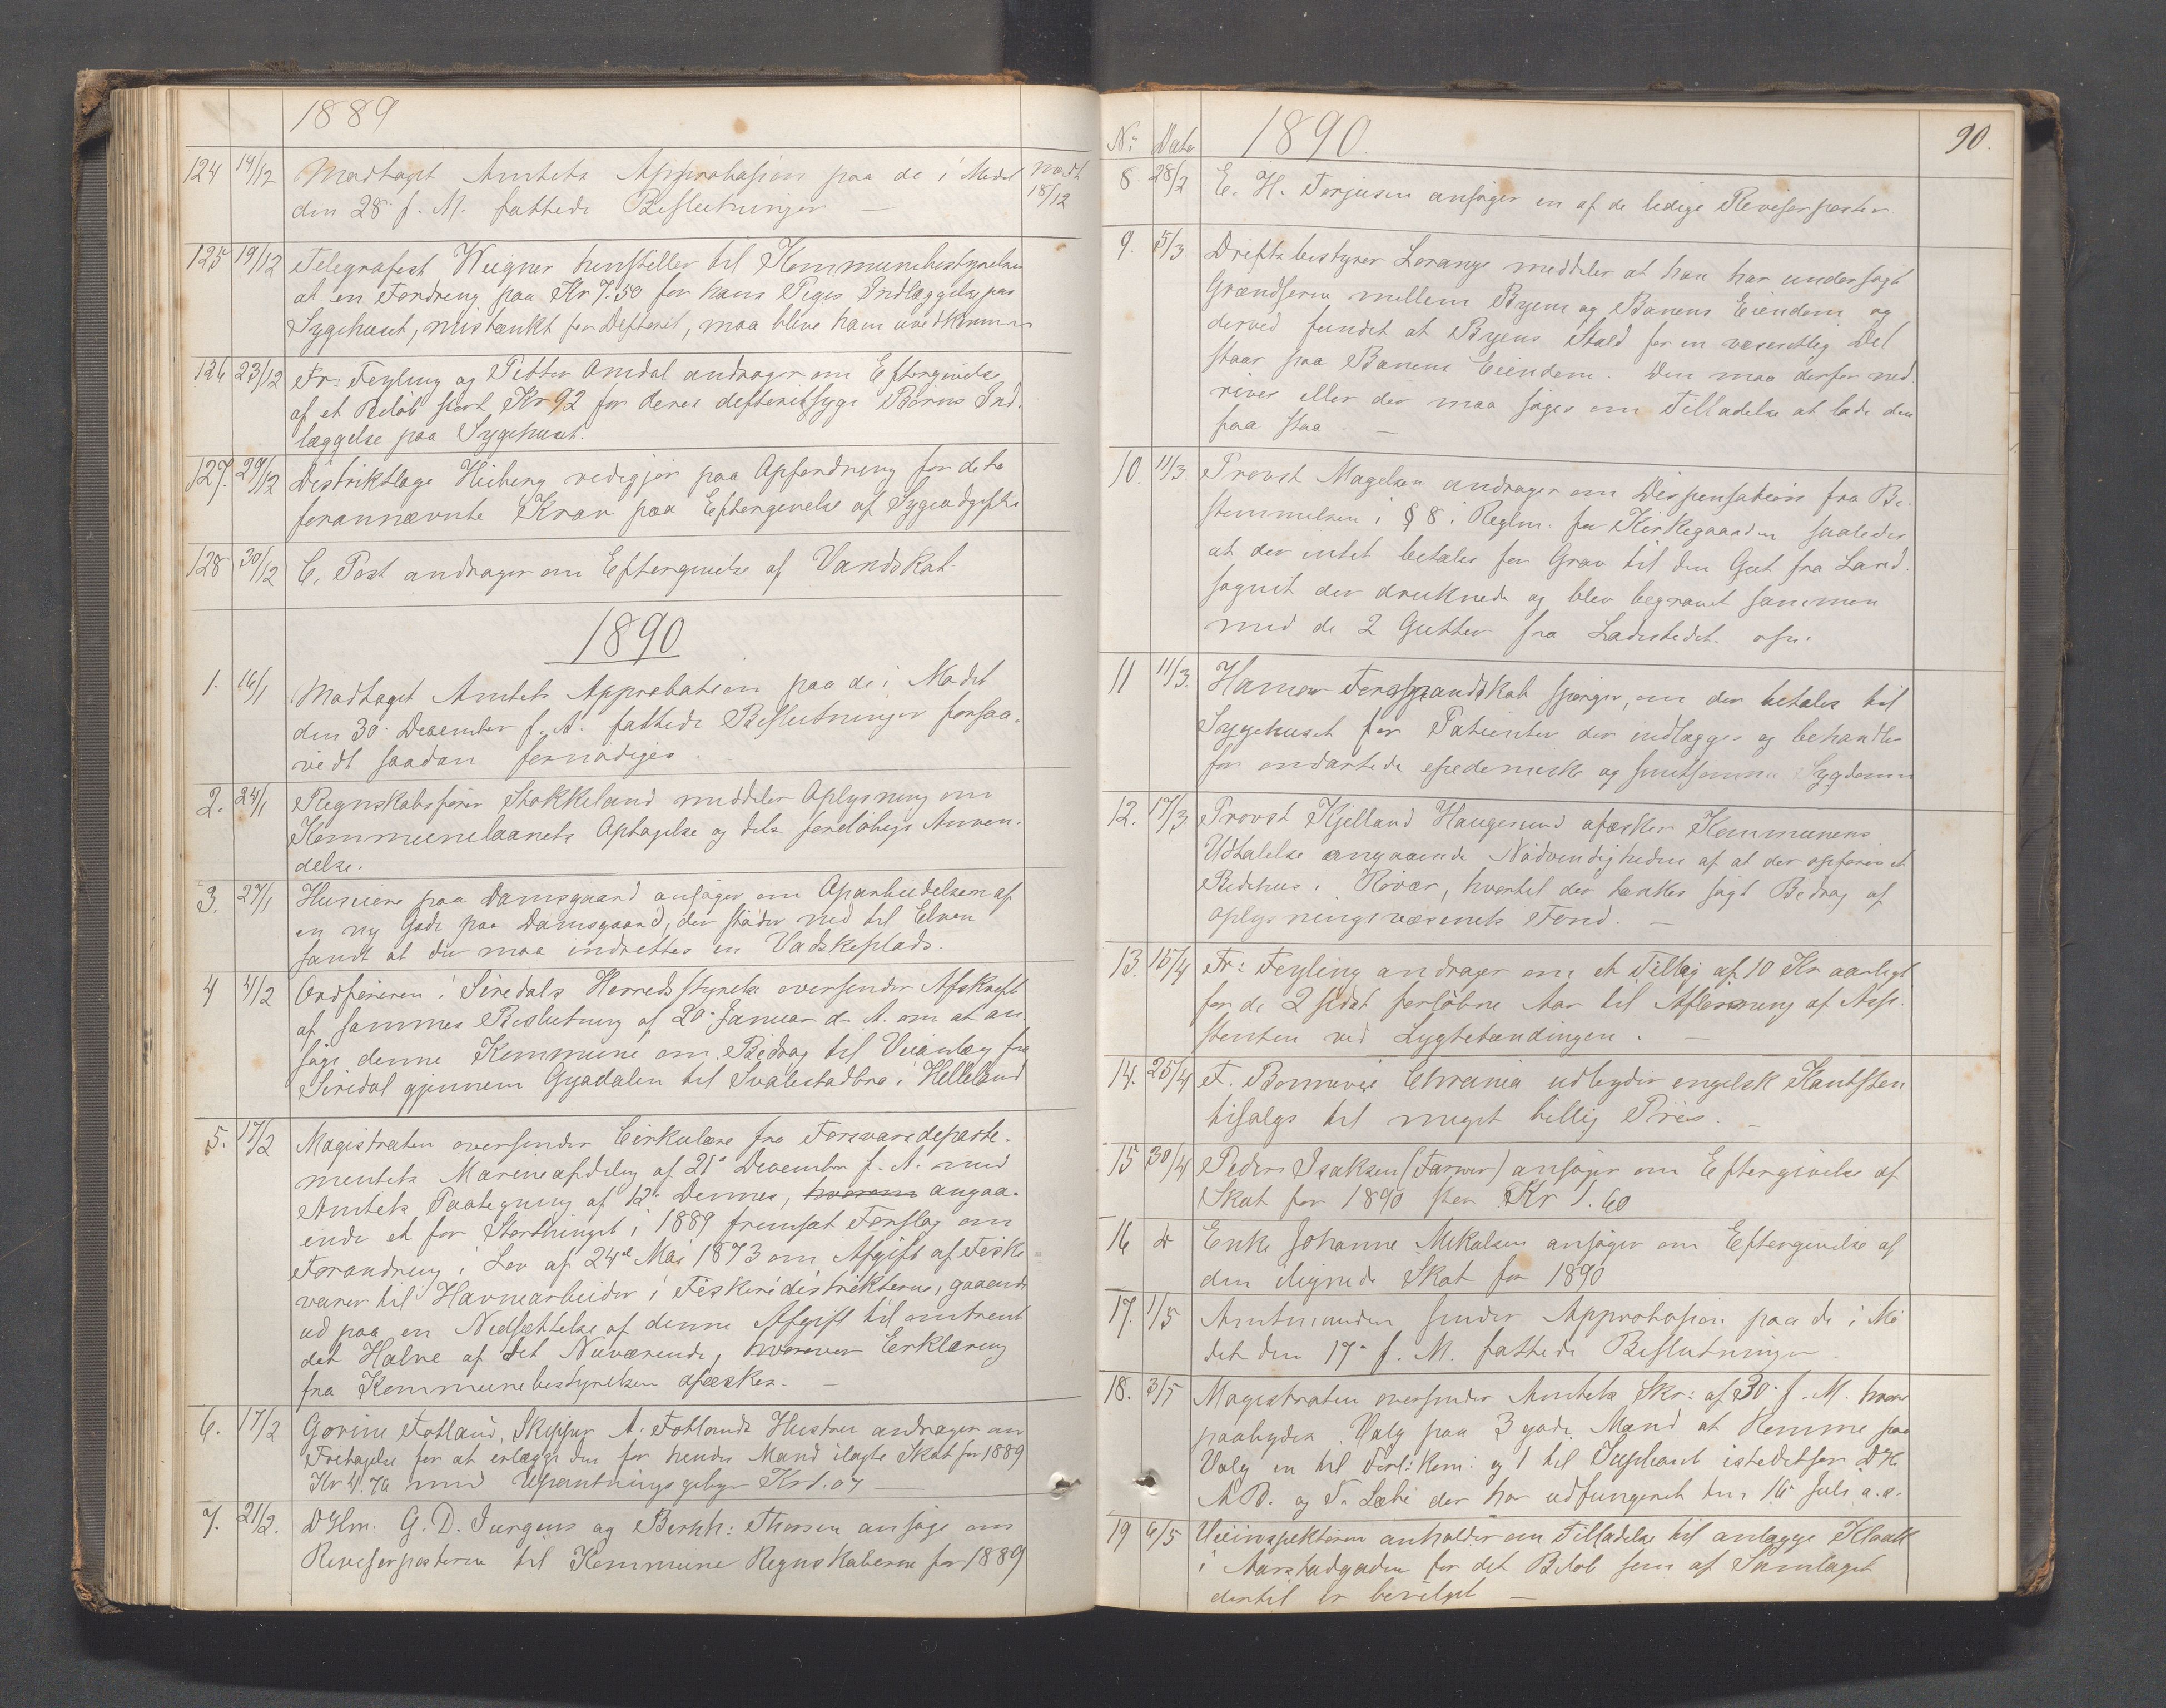 1889
124 14/12 Modtaget Amtets Approbasjon paa de i Mødet modt
den 28 f. M. fattede Beslutninger — 18/12
125 19/12 Telegrafist Wiegner henstiller til Kommunebestyrelsen
at en Fordring paa Kr 7.50 for hans Piges Indlæggelse paa
Sygehuset, mistænkt for Defterit, maa blive ham uvedkommen
126 23/12 Fr: Feyling og Petter Omdal andrager om Eftergivelse
af et Beløb stort Kr 92 for deres defteritsyge Børns Ind-
læggelse paa Sygehuset.
127. 29/12 Distriktlæge Hiberg redegjør paa Opfordring for dette
forannævnte Krav paa Eftergivelse af Sygeudgifte
128 30/12 C. Post andrager om Eftergivelse af Vandskat
1890
1. 16/1 Modtaget Amtets Approbation paa de i Mødet
den 30. December f. A. fattede Beslutninger forsaa-
vidt saadan fornødiges
2. 24/1 Regnskabsfører Stokkeland meddeler Oplysning om
Kommunelaanets Optagelse og dets foreløbige Anven-
delse.
3. 27/1 Huseiere paa Damsgaard ansøger om Oparbeidelsen af
en ny Gade paa Damsgaard, der støder ned til Elven
samt at der maa indrettes en Vadskeplads.
4 4/2 Ordføreren i Siredals Herredsstyrelse oversender Afskrift
af sammes Beslutning af 20. Januar d. A. om at an-
søge denne Kommune om Bedrag til Veianlæg fra
Siredal gjennem Gyadalen til Svalestadbro i Helleland
5. 17/2 Magistraten oversender Cirkulære fra Forsvarsdeparte-
mentets Marineafdeling af 21. December f. A. med
Amtets Paategning af 12. Dennes, hvorom angaa-
ende et for Storthinget i 1889 fremsat Forslag om
Forandring i Lov af 24de Mai 1873 om Afgift af Fiske
varer til Havnearbeider i Fiskeridistrikterne, gaaende
ud paa en Nedsættelse af denne Afgift til omtrent
det Halve af det Nuværende, hvorover Erklæring
fra Kommunebestyrelsen afæskes. —
6. 17/2 Gorine Fotland, Skipper A. Fotlands Hustru andrager om
Fritagelse for at erlægge den for hendes Mand ilagte Skat for 1889
Kr 4.76 med Udpantningsgebyr Kr 1.04 —
7. 21/2. DHrr. G. D. Jurgens og Bernh: Thorsen ansøge om
Revisorposterne til Kommune Regnskaberne for 1889
No Dato 1890. 90.
8 28/2 E. H. Terjesen ansøger en af de ledige Revisorposter.
9. 5/3. Driftsbestyrer Lorange meddeler at han har undersøgt
Grændserne mellem Byens og Banens Eiendom og
derved fundet at Byens Stald for en væsentlig Del
staar paa Banens Eiendom. Den maa derfor ned-
rives eller der maa søges om Tilladelse at lade den
faa staa. —
10. 11/3. Provst Magelsen andrager om Dispensation fra Be-
stemmelsen i § 8 i Reglm. for Kirkegaarden saaledes
at der intet betales for Grav til den Gut fra Land-
sognet der druknede og blev begravet sammen
med de 2 Gutter fra Ladestedet. osv.
11 11/3. Hamar Formandskab spørger, om der betales til
Sygehuset for Patienter der indlægges og behandles
for ondartede epedemisk og smitsomme Sygdomm
12. 17/3 Provst Kjelland Haugesund afæsker Kommunens
Udtalelse angaaende Nødvendigheden af at der opføres et
Bedehus i Røvær, hvortil der tænkes søgt Bedrag af
Oplysningsvæsenets Fond. —
13. 15/4 Fr: Feyling andrager om et Tillæg af 10 Kr aarligt
for de 2 sidst forløbne Aar til Aflønning af Assi-
stenten ved Lygtetændingen. —
14. 25/4 F. Bonnevie Chrania udbyder engelsk Kantsten
tilsalgs til meget billig Priis. —
15 30/4 Peder Isaksen (Farver) ansøger om Eftergivelse af
Skat for 1890 stor Kr 1.60
16 D Enke Johanne Mikalsen ansøger om Eftergivelse af
den ilignede Skat for 1890
17. 1/5 Amtmanden sender Approbasion paa de i Mø
det den 17. f. M. fattede Beslutninger —
18. 3/5 Magistraten oversender Amtets Skr: af 30. f. M. hvori
paabydes Valg paa 3 gode Mænd at komme paa
Valg en til Forl: Kom: og 1 til Supleant istedetfor DHr
A B. og T. Læhe der har udfungeret den 16 Juli a. a.
19 6/5 Veiinspektøren anholder om Tilladelse til anlægge Kloakk
i Aarstadgaden for det Beløb som af Samlaget
dertil er bevilget —